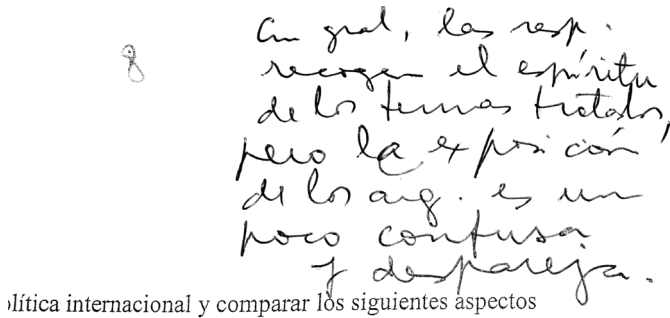 En gral, las resp.
recogen el espíritu
de los temas tratados,
pero la exposición
de los arg. es un
poco confusa
y despareja.
olítica internacional y comparar los siguientes aspectos